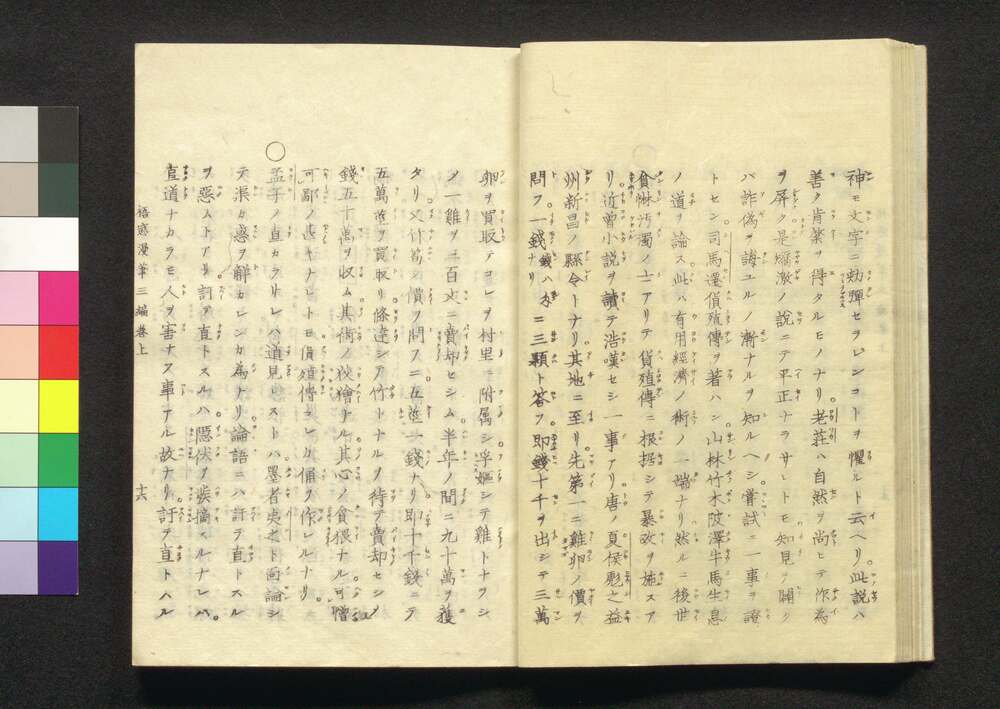 神モ文字ニ勅彈セラレンコトヲ懼ルト云ヘリ此説ハ
善ク肯綮ヲ得タルモノナリ老莊ハ自然ヲ尚ヒテ作為
ヲ屏ク是矯激ノ説ニテ平正ナラサレトモ知見ヲ開ク
ハ詐偽ヲ誨ユルノ漸ナルヲ知ルヘシ嘗試ニ一事ヲ證
トセン司馬遷貨殖傳ヲ著ハシ山林竹木陂澤牛馬生息
ノ道ヲ論ス此ハ有用經濟ノ術ノ一端ナリ然ルニ後世
貪惏汚濁ノ士アリテ貨殖傳ニ根据シテ暴政ヲ施スア
リ近曾小説ヲ讀テ浩漢セシ一事アリ唐ノ夏侯彪之益
州新昌ノ縣令トナリ其地ニ至リ先第一ニ雞卵ノ價ヲ
問フ一錢ナリ錢ハカニ三顆ト答フ即錢十千ヲ出シテ三萬
卵ヲ買取テコレヲ村里ニ附属シ孚嫗シテ雞トナラシ
メ一雞ヲ三百文ニ賣却セシム半年ノ間ニ九十萬ヲ獲
タリ又竹筍ノ價ヲ問フニ五莖一錢ナリ即十千錢ニテ
五萬莖ヲ買取リ條達シテ竹トナルヲ待テ賣却セシメ
錢五十萬ヲ收ム其術ノ狡獪ナル其心ノ貪猥ナル可憎
可鄙ノ甚キナレトモ貨殖傳コレカ俑ヲ作レルナリ
○孟子ノ直カラサレハ道見ヘストハ墨者夷之ト商論シ
テ渠カ惑ヲ解カレンカ為ナリ論語ニハ訐テ直トスル
ヲ惡ムトアリ訐テ直トスルハ隱伏ヲ疾摘スルナレハ
直道ナカラモ人ヲ害ナス事アル故ナリ訐テ直トハル
梧窓漫筆三編巻上 十六